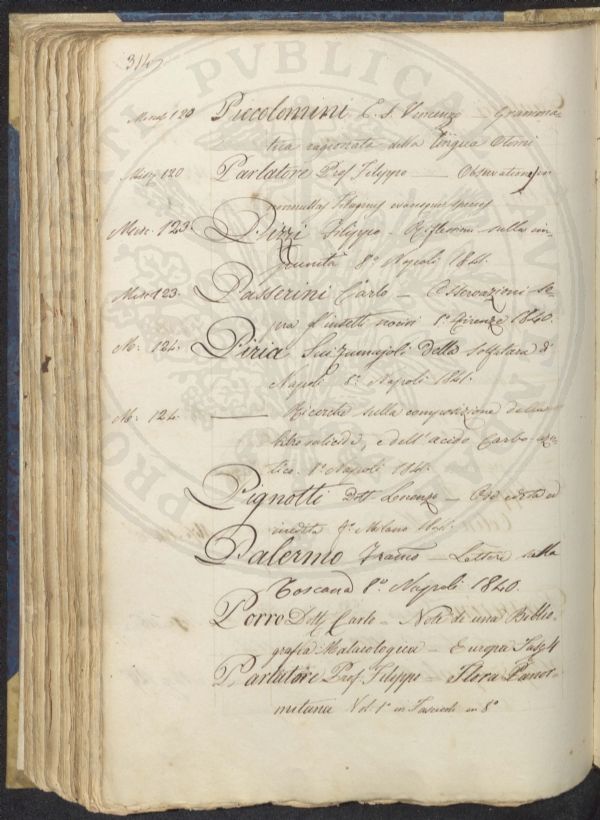 314
Misc. 120 Piccolomini C. S. Vincenzo — Gramma-
tica ragionata della lingua Otomi
Misc. 120 Parlatore Prof. Filippo — Observationes in
nonnullas species
Misc. 123. Pizzi Filippo — Riflessioni sulla im-
punità 8° Napoli 1841.
Misc. 123. Passerini Carlo — Osservazioni so-
pra gl'insetti nocivi 1° Firenze 1840.
M. 124. Piria Sui fumajoli della solfatara di
Napoli 8° Napoli 1841.
M. 124. — Ricerche sulla composizione della
e dell'acido Carbo-azo-
tico. Napoli 1841.
Pignotti Dott. Lorenzo — edita ed
inedita Milano
Palermo Franco — Lettere sulla
Toscana 8° Napoli 1840.
Porro Dott. Carlo — Note di una Biblio-
grafia Malacologica — Europa Fasc. 4
Parlatore Prof. Filippo — Flora Panor-
mitana Vol. 1° in Fascicoli in 8°